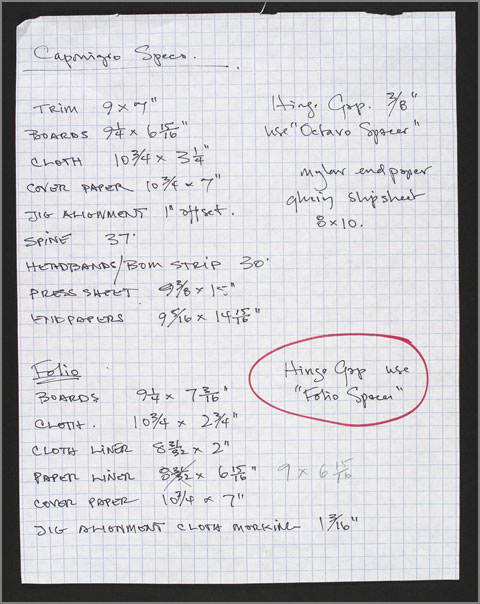 Caponigro Specs.
TRIM 9 x 7"
BOARDS 9 1/4 x 6 15/16"
CLOTH 10 3/4 x 3 1/4"
COVER PAPER 10 3/4 x 7"
JIG ALIGNMENT 1" offset.
SPINE 37'
HEADBANDS/BOM STRIP 30'
PRESS SHEET 9 3/8 x 15"
ENDPAPERS 9 5/16 x 14 15/16"
Hinge Gap. 3/8"
use "Octavo Spacer"
mylar endpaper
gluing slipsheet
8x10.
Folio
BOARDS 9 1/4 x 7 3/16"
CLOTH. 10 3/4 x 2 3/4"
CLOTH LINER 8 31/32 x 2"
PAPER LINER 8 31/32 x 6 15/16" 9 x 6 15/16
COVER PAPER 10 3/4 x 7"
JIG ALIGNMENT CLOTH MARKING 1 3/16"
Hinge Gap use
"Folio Spacer"